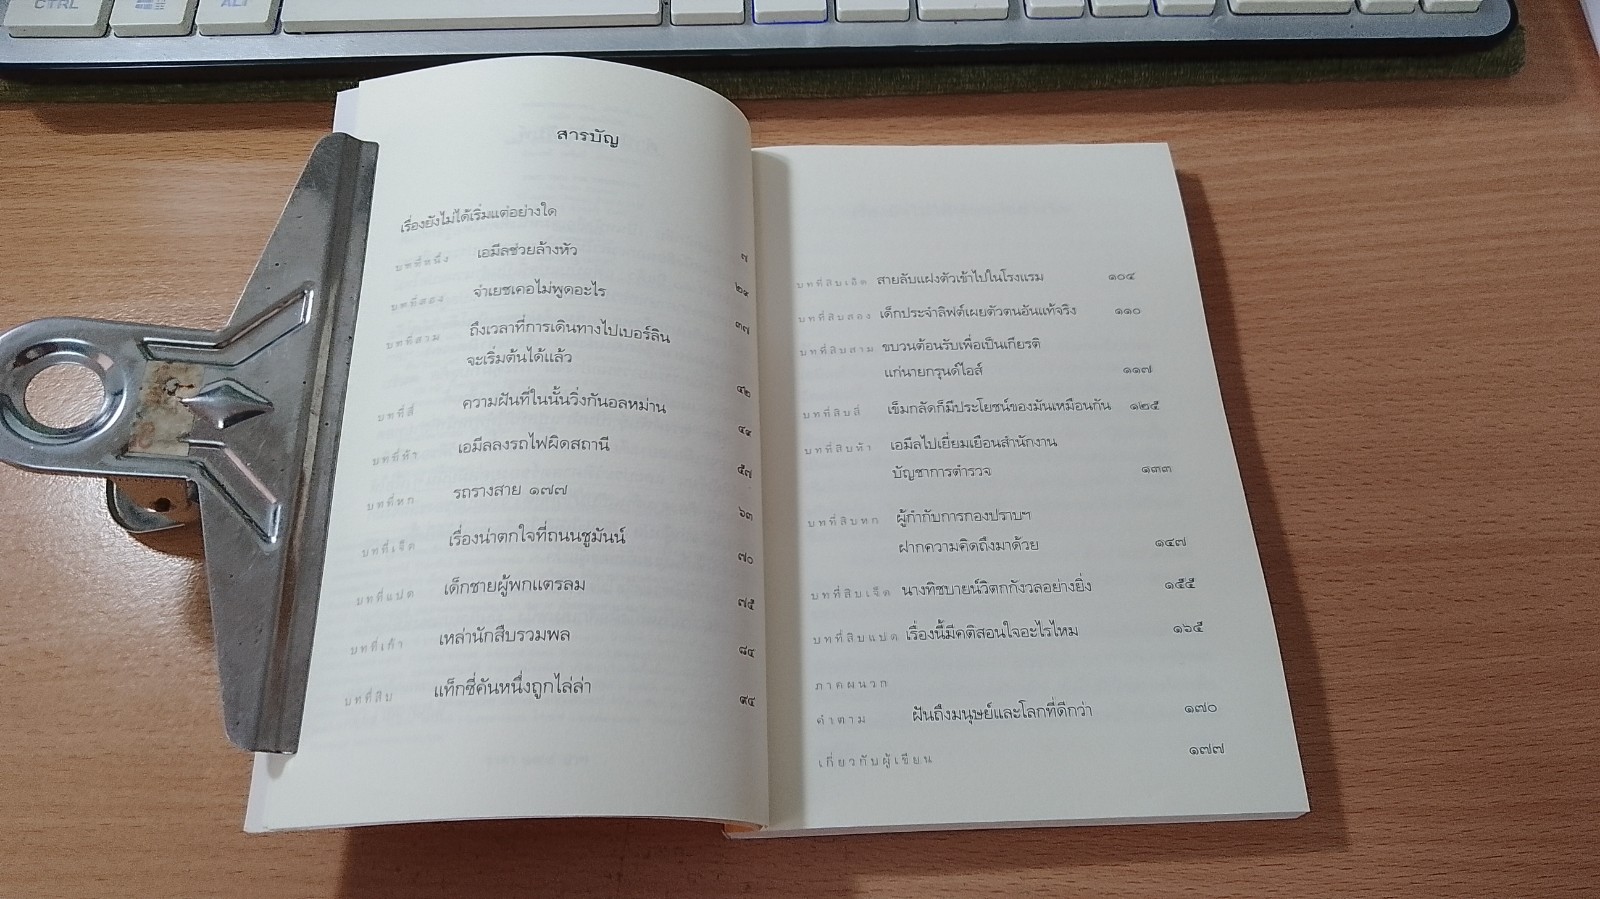 CTRL
ALT
สารบัญ
เรื่องยังไม่ได้เริ่มแต่อย่างใด ๗
บทที่หนึ่ง เอมีลช่วยล้างหัว ๒๑
บทที่สอง จ่าเยชเคอไม่พูดอะไร ๓๗
บทที่สาม ถึงเวลาที่การเดินทางไปเบอร์ลิน
จะเริ่มต้นได้แล้ว ๔๒
บทที่สี่ ความฝันที่ในนั้นวิ่งกันอลหม่าน
บทที่ห้า เอมีลลงรถไฟผิดสถานี ๕๗
บทที่หก รถรางสาย ๑๗๗ ๖๓
บทที่เจ็ด เรื่องน่าตกใจที่ถนนชูมันน์ ๗๐
บทที่แปด เด็กชายผู้พกแตรลม ๗๕
บทที่เก้า เหล่านักสืบรวมพล ๘๔
บทที่สิบ แท็กซี่คันหนึ่งถูกไล่ล่า ๙๔
บทที่สิบเอ็ด สายลับแฝงตัวเข้าไปในโรงแรม ๑๐๔
บทที่สิบสอง เด็กประจำลิฟต์เผยตัวตนอันแท้จริง ๑๑๐
บทที่สิบสาม ขบวนต้อนรับเพื่อเป็นเกียรติ
แก่นายกรุนด์ไอส์ ๑๑๗
บทที่สิบสี่ เข็มกลัดก็มีประโยชน์ของมันเหมือนกัน ๑๒๕
บทที่สิบห้า เอมีลไปเยี่ยมเยือนสำนักงาน
บัญชาการตำรวจ ๑๓๓
บทที่สิบหก ผู้กำกับการกองปราบฯ
ฝากความคิดถึงมาด้วย ๑๔๗
บทที่สิบเจ็ด นางทิชบายน์วิตกกังวลอย่างยิ่ง ๑๕๕
บทที่สิบแปด เรื่องนี้มีคติสอนใจอะไรไหม ๑๖๕
ภาคผนวก
คำตาม ฝันถึงมนุษย์และโลกที่ดีกว่า ๑๗๐
เกี่ยวกับผู้เขียน ๑๗๗